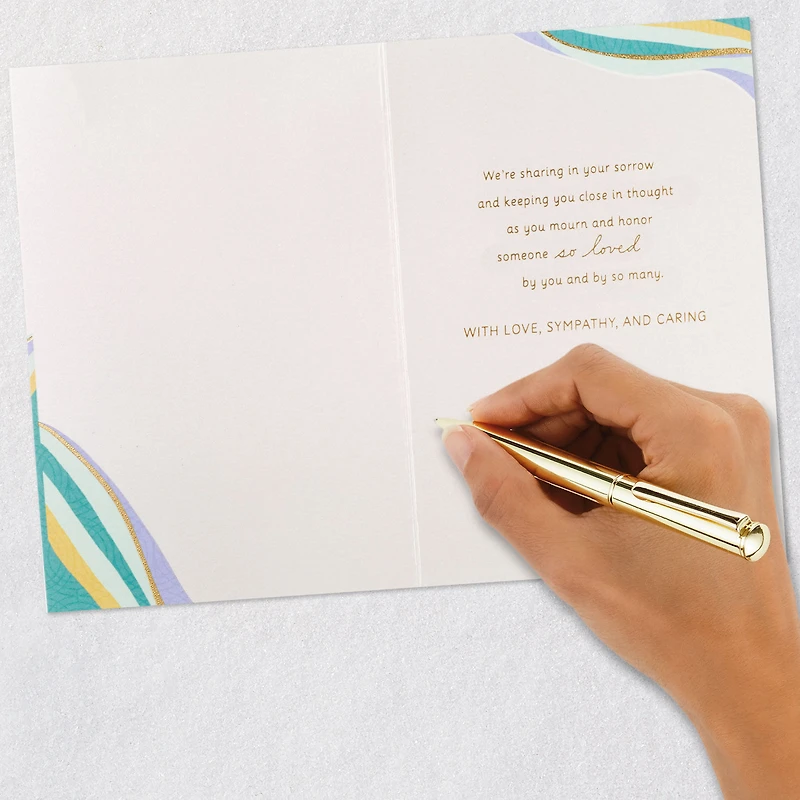 We're sharing in your sorrow
and keeping you close in thought
as you mourn and honor
someone so loved
by you and by so many.
WITH LOVE, SYMPATHY, AND CARING